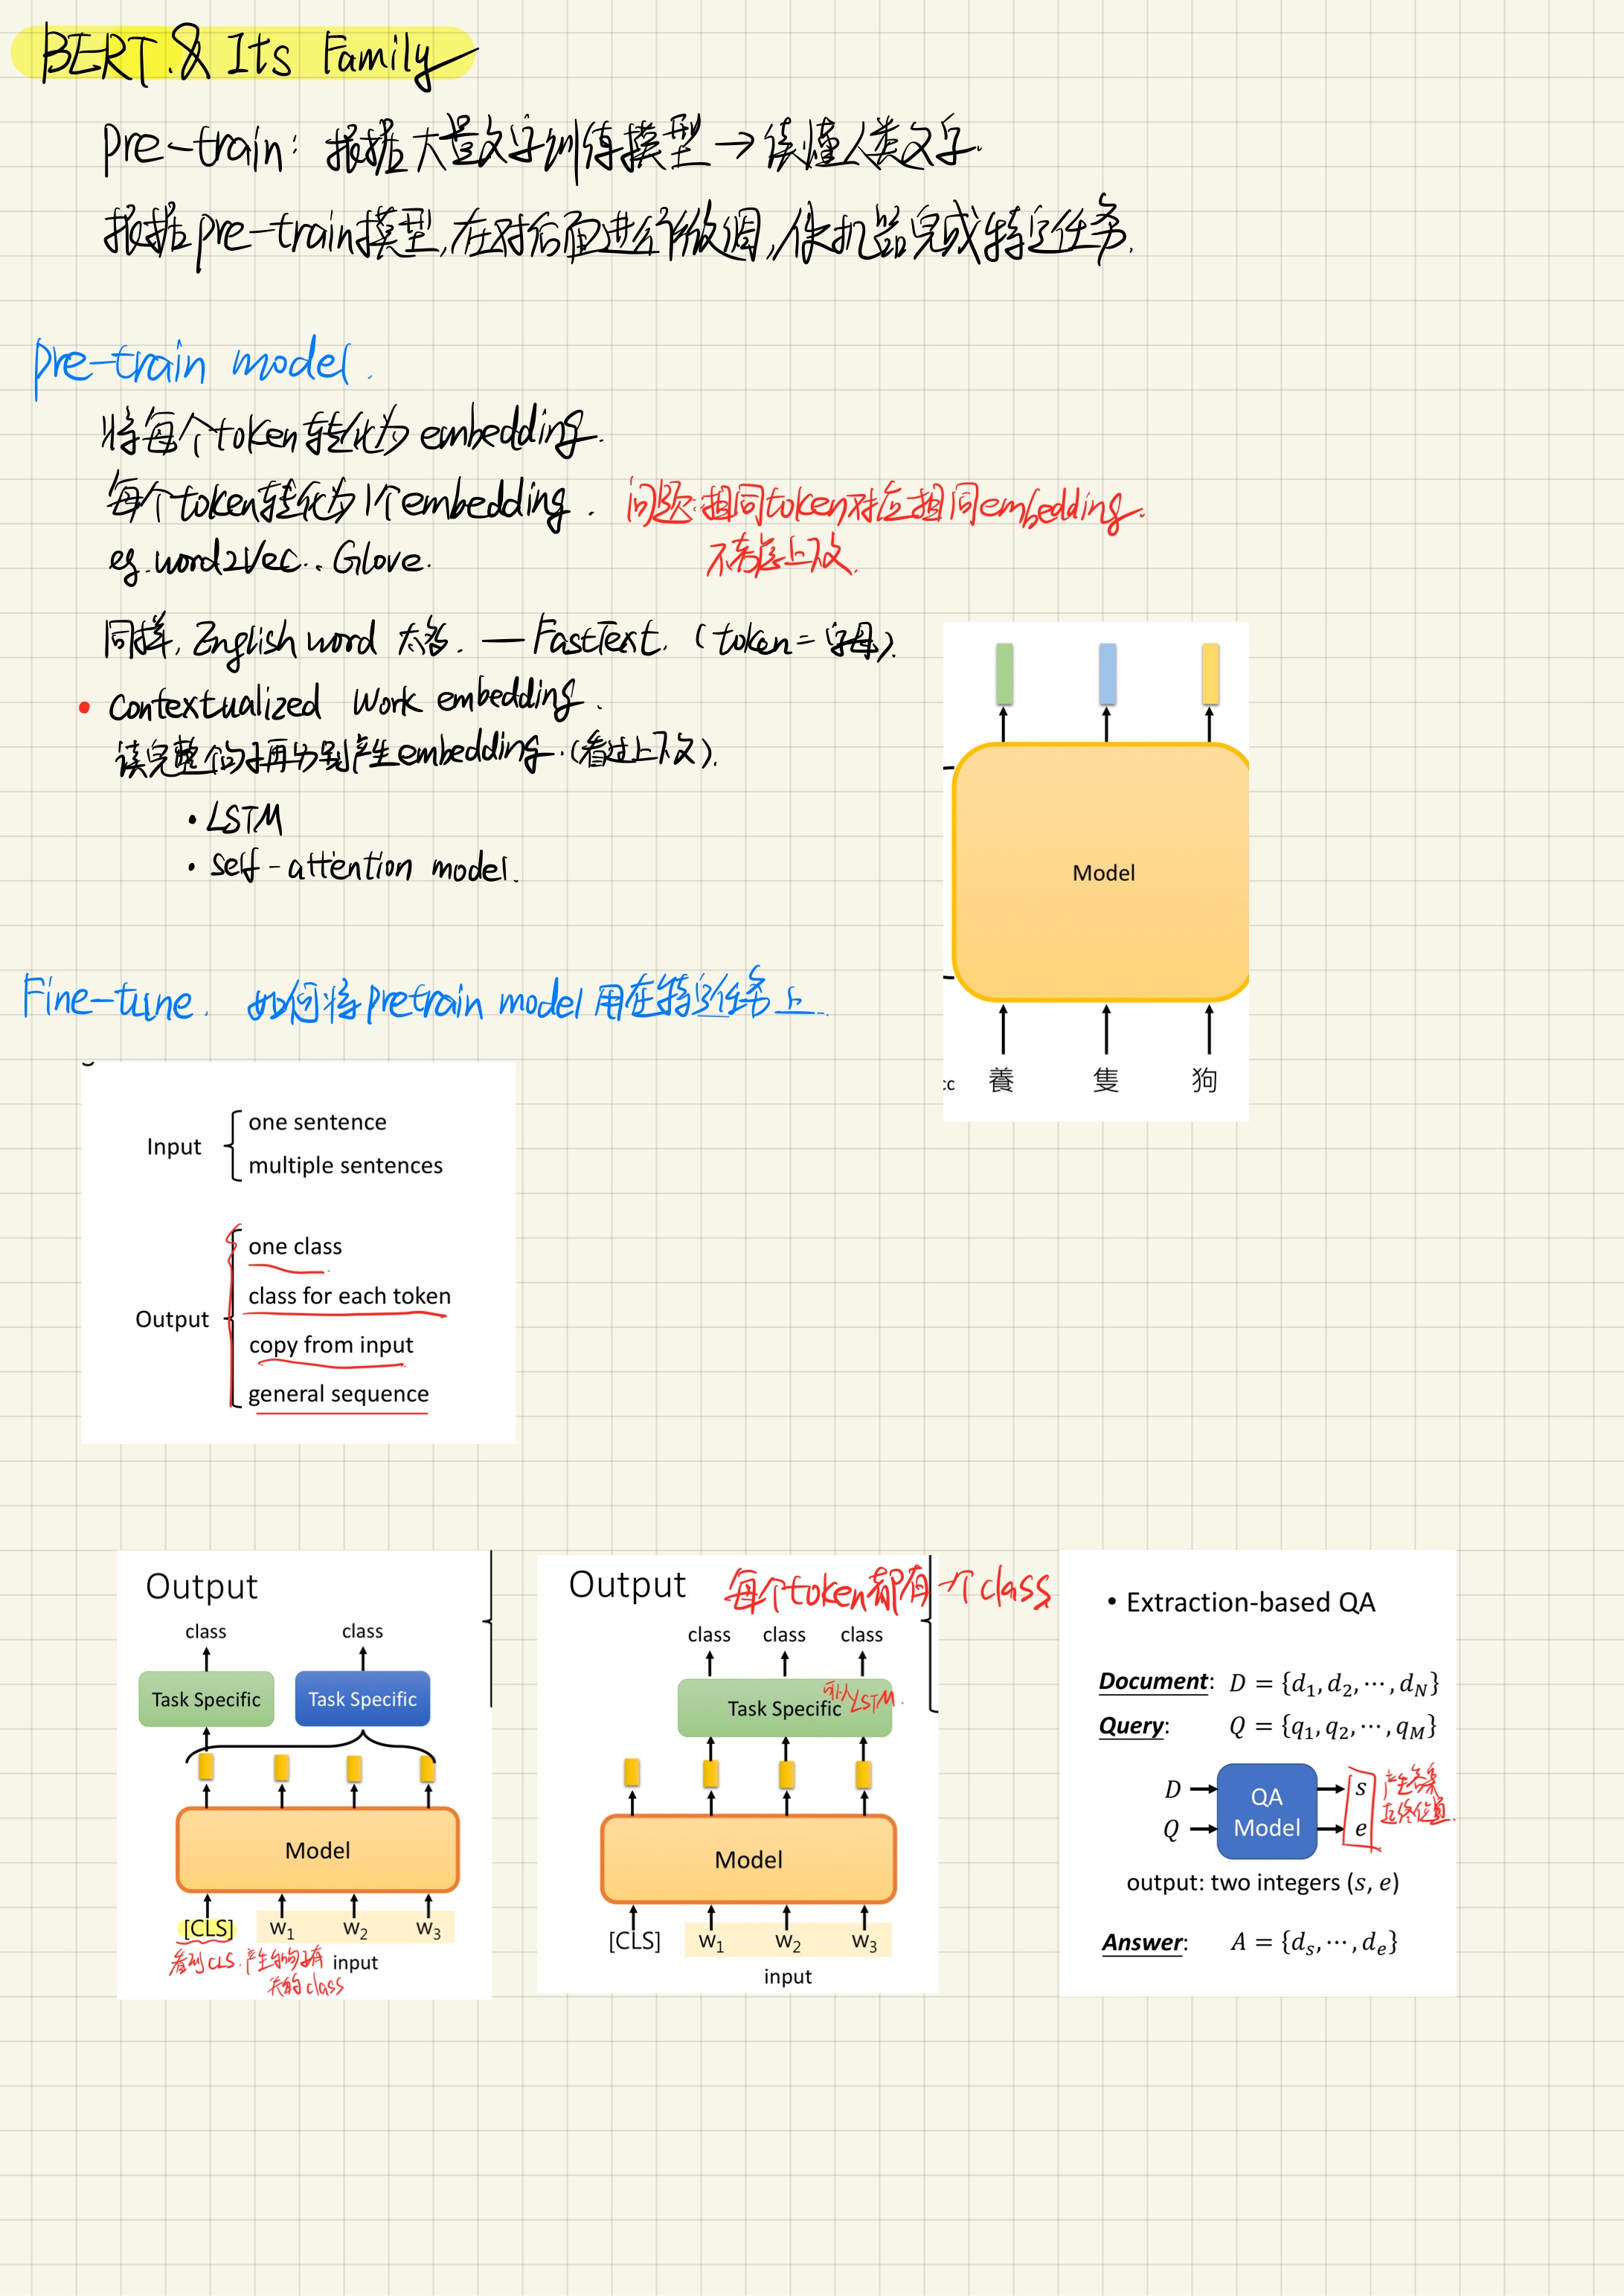 BERT. & Its Family
Pre-train: 根据大量文字训练模型 → 读懂人类文字.
根据pre-train模型,在对后面进行微调,使机器完成特定任务.
pre-train model.
将每个token转化为embedding.
每个token转化为1个embedding. 问题:相同token对应相同embedding.
eg. word2Vec.. Glove. 不考虑上下文.
同样, English word 太多. — FastText. (token=字母).
• Contextualized Work embedding.
读完整个句子再分别产生embedding.(看过上下文).
• LSTM
• self-attention model.
Model
cc 養 隻 狗
Fine-tune. 如何将pretrain model 用在特定任务上.
Input
one sentence
multiple sentences
Output
one class
class for each token
copy from input
general sequence
Output
class class
Task Specific Task Specific
Model
[CLS] w1 w2 w3
看到CLS.产生与句子有 input
关的class
Output 每个token都有一个class
class class class
Task Specific 可以LSTM.
Model
[CLS] w1 w2 w3
input
• Extraction-based QA
Document: D = {d1, d2, ⋯, dN}
Query: Q = {q1, q2, ⋯, qM}
D QA s 产生答案
Q Model e 起终位置.
output: two integers (s, e)
Answer: A = {ds, ⋯, de}